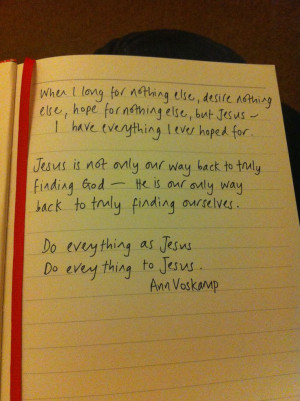 When I long for nothing else, desire nothing
else, hope for nothing else, but Jesus —
I have everything I ever hoped for.
Jesus is not only our way back to truly
finding God — He is our only way
back to truly finding ourselves.
Do everything as Jesus
Do everything to Jesus.
Ann Voskamp